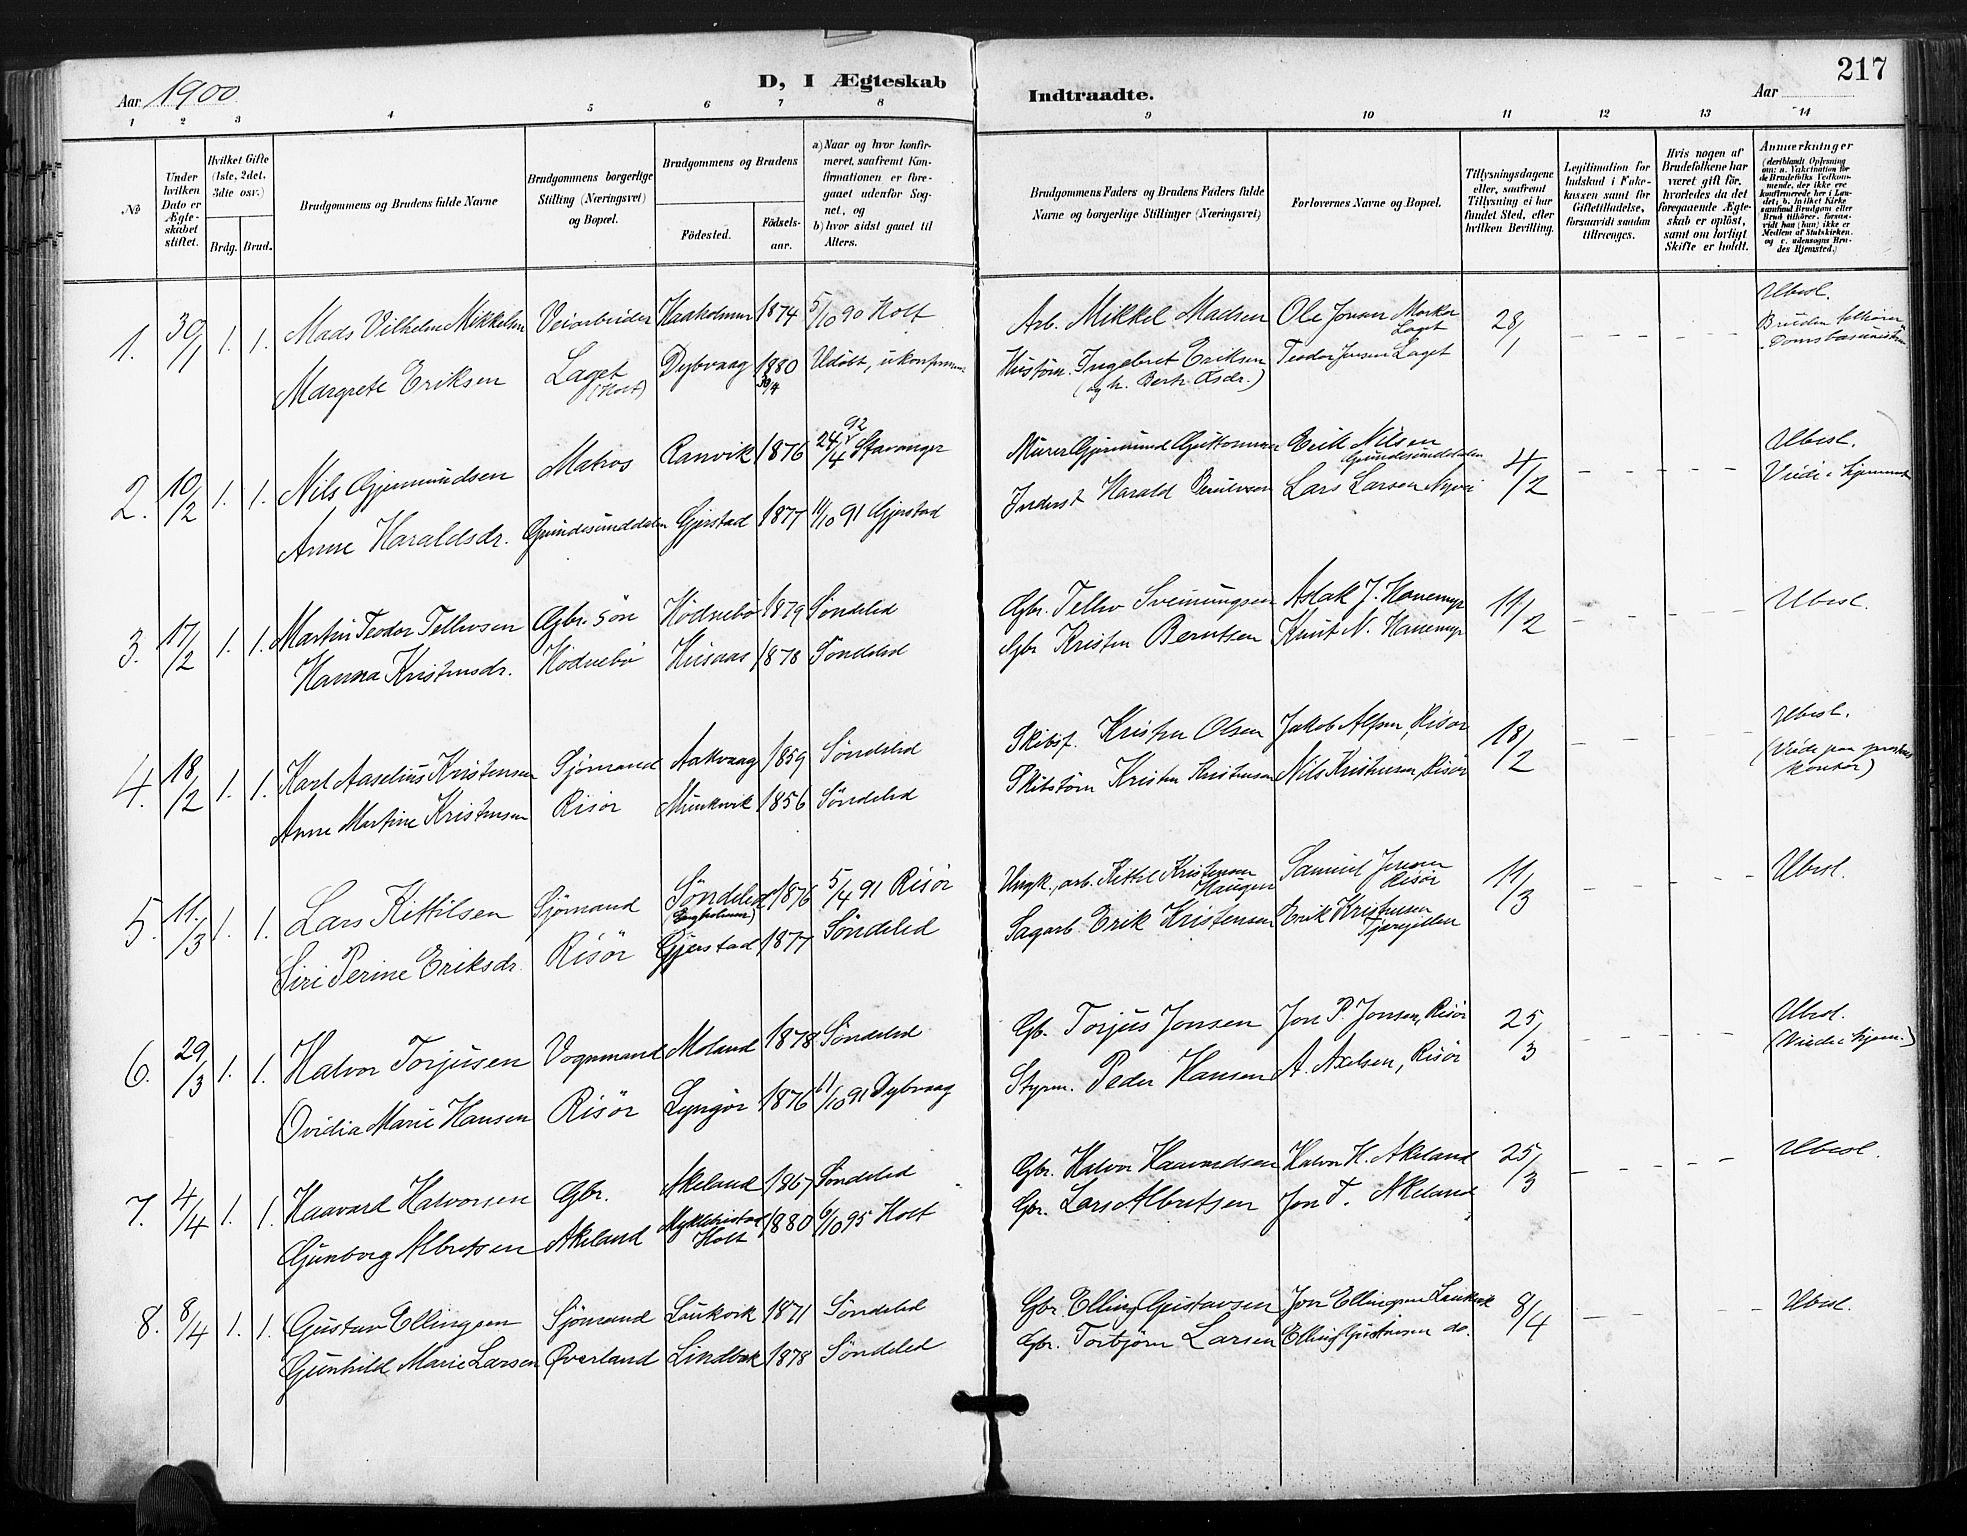 217
Aar 1900
D, I Ægteskab
Indtraadte.
Aar
1 2 3 4 5 6 7 8 9 10 11 12 13 14
No
Under hvilken Dato er Ægteskabet stiftet.
Hvilket Gifte (1ste, 2det, 3die osv.)
Brdg. Brud.
Brudgommens og Brudens fulde Navne
Brudgommens borgerlige Stilling (Næringsvei) og Bopæl.
Brudgommens og Brudens
Fødested.
Fødselsaar.
a) Naar og hvor konfirmeret, saafremt Konfirmationen er foregaaet udenfor Sognet, og
b) hvor sidst gaaet til Alters.
Brudgommens Faders og Brudens Faders fulde Navne og borgerlige Stillinger (Næringsvei)
Forlovernes Navne og Bopæl.
Tillysningsdagene eller, saafremt Tillysning ei har fundet Sted, efter hvilken Bevilling.
Legitimation for Indskud i Enkekassen samt for Giftetilladelse, forsaavidt saadan tiltrænges.
Hvis nogen af Brudefolkene har været gift før, hvorledes da det foregaaende Ægteskab er opløst, samt om lovligt Skifte er holdt.
Anmærkninger
(deriblandt Oplysning om: a. Vaksination for de Brudefolks Vedkommende, der ikke ere konfirmerede her i Landet; b. hvilket Kirkesamfund Brudgom eller Brud tilhører, forsaavidt han (hun) ikke er Medlem af Statskirken, og c. udensogns Brudes Hjemsted.)
1. 30/1 1. 1. Mads Vilhelm Mikkelsen Veiarbeider Haakolmen 1874 5/10 90 Holt Arb. Mikkel Madsen Ole Jonsen Laget 28/1 Ubesl.
Margrete Eriksen Laget (Holt) Dybvaag 1880 30/4 Udøbt, ukonfirmeret Ingebret Eriksen Teodor Jensen Laget Bruden tilhører
2. 10/2 1. 1. Nils Gjermundsen Matros Ranvik 1876 24/4 92 Stavanger Murer Gjermund Erik Nilsen Grundesunddalen 4/2 Ubesl.
Anne Haraldsdr. Grundesunddalen Gjerstad 1877 11/10 91 Gjerstad Inderst Harald Lars Larsen Viede i hjemmet
3. 17/2 1. 1. Martin Teodor Tellevsen Gbr. søn Hødnebø 1879 Søndeled Gbr. Tellev Sveinungsen Aslak J. Hanemyr 11/2 Ubesl.
Hanna Kristensdr. Hødnebø Husaas 1878 Søndeled Gbr Kristen Berntsen Knut N. Hanemyr
4. 18/2 1. 1. Karl Aaselius Kristensen Sjömand Aakvaag 1859 Søndeled Skibsf. Kristen Olsen Jakob Alfsen, Risør 18/2 Ubesl.
Anne Martine Kristensen Risør Munkvik 1856 Søndeled Skibstøm Kristen Kristensen Nils Kristensen, Risør (Viede paa prestens kontor)
5. 11/3 1. 1. Lars Kittilsen Sjömand Søndeled 1876 5/4 91 Risør Kittil Kristensen Haugen Samuel Jensen Risør 11/3 Ubesl.
Siri Perine Eriksdr. Risør Gjerstad 1877 Søndeled Sagarb. Erik Kristensen Erik Kristensen
6. 29/3 1. 1. Halvor Torjusen Vognmand Moland 1878 Søndeled Gb. Torjus Jonsen Jon P. Jonsen, Risør 25/3 Ubesl.
Ovidia Marie Hansen Risør Lyngør 1876 11/10 91 Dybvaag Styrm. Peder Hansen A. Axelsen, Risør (Viede i hjem.)
7. 4/4 1. 1. Haavard Halvorsen Gbr. Akeland 1867 Søndeled Gbr. Halvor Haavardsen Halvor H. Akeland 25/3 Ubesl.
Gunborg Albretsen Akeland Holt 1880 6/10 95 Holt Gbr. Lars Albretsen Jon T. Akeland
8. 8/4 1. 1. Gustav Ellingsen Sjömand Laukvik 1871 Søndeled Gbr. Elling Gustavsen Jon Ellingsen Laukvik 8/4 Ubesl.
Gunhild Marie Larsen Øverland Lindbæk 1878 Søndeled Gbr. Torbjørn Larsen Elling Gustavsen do.